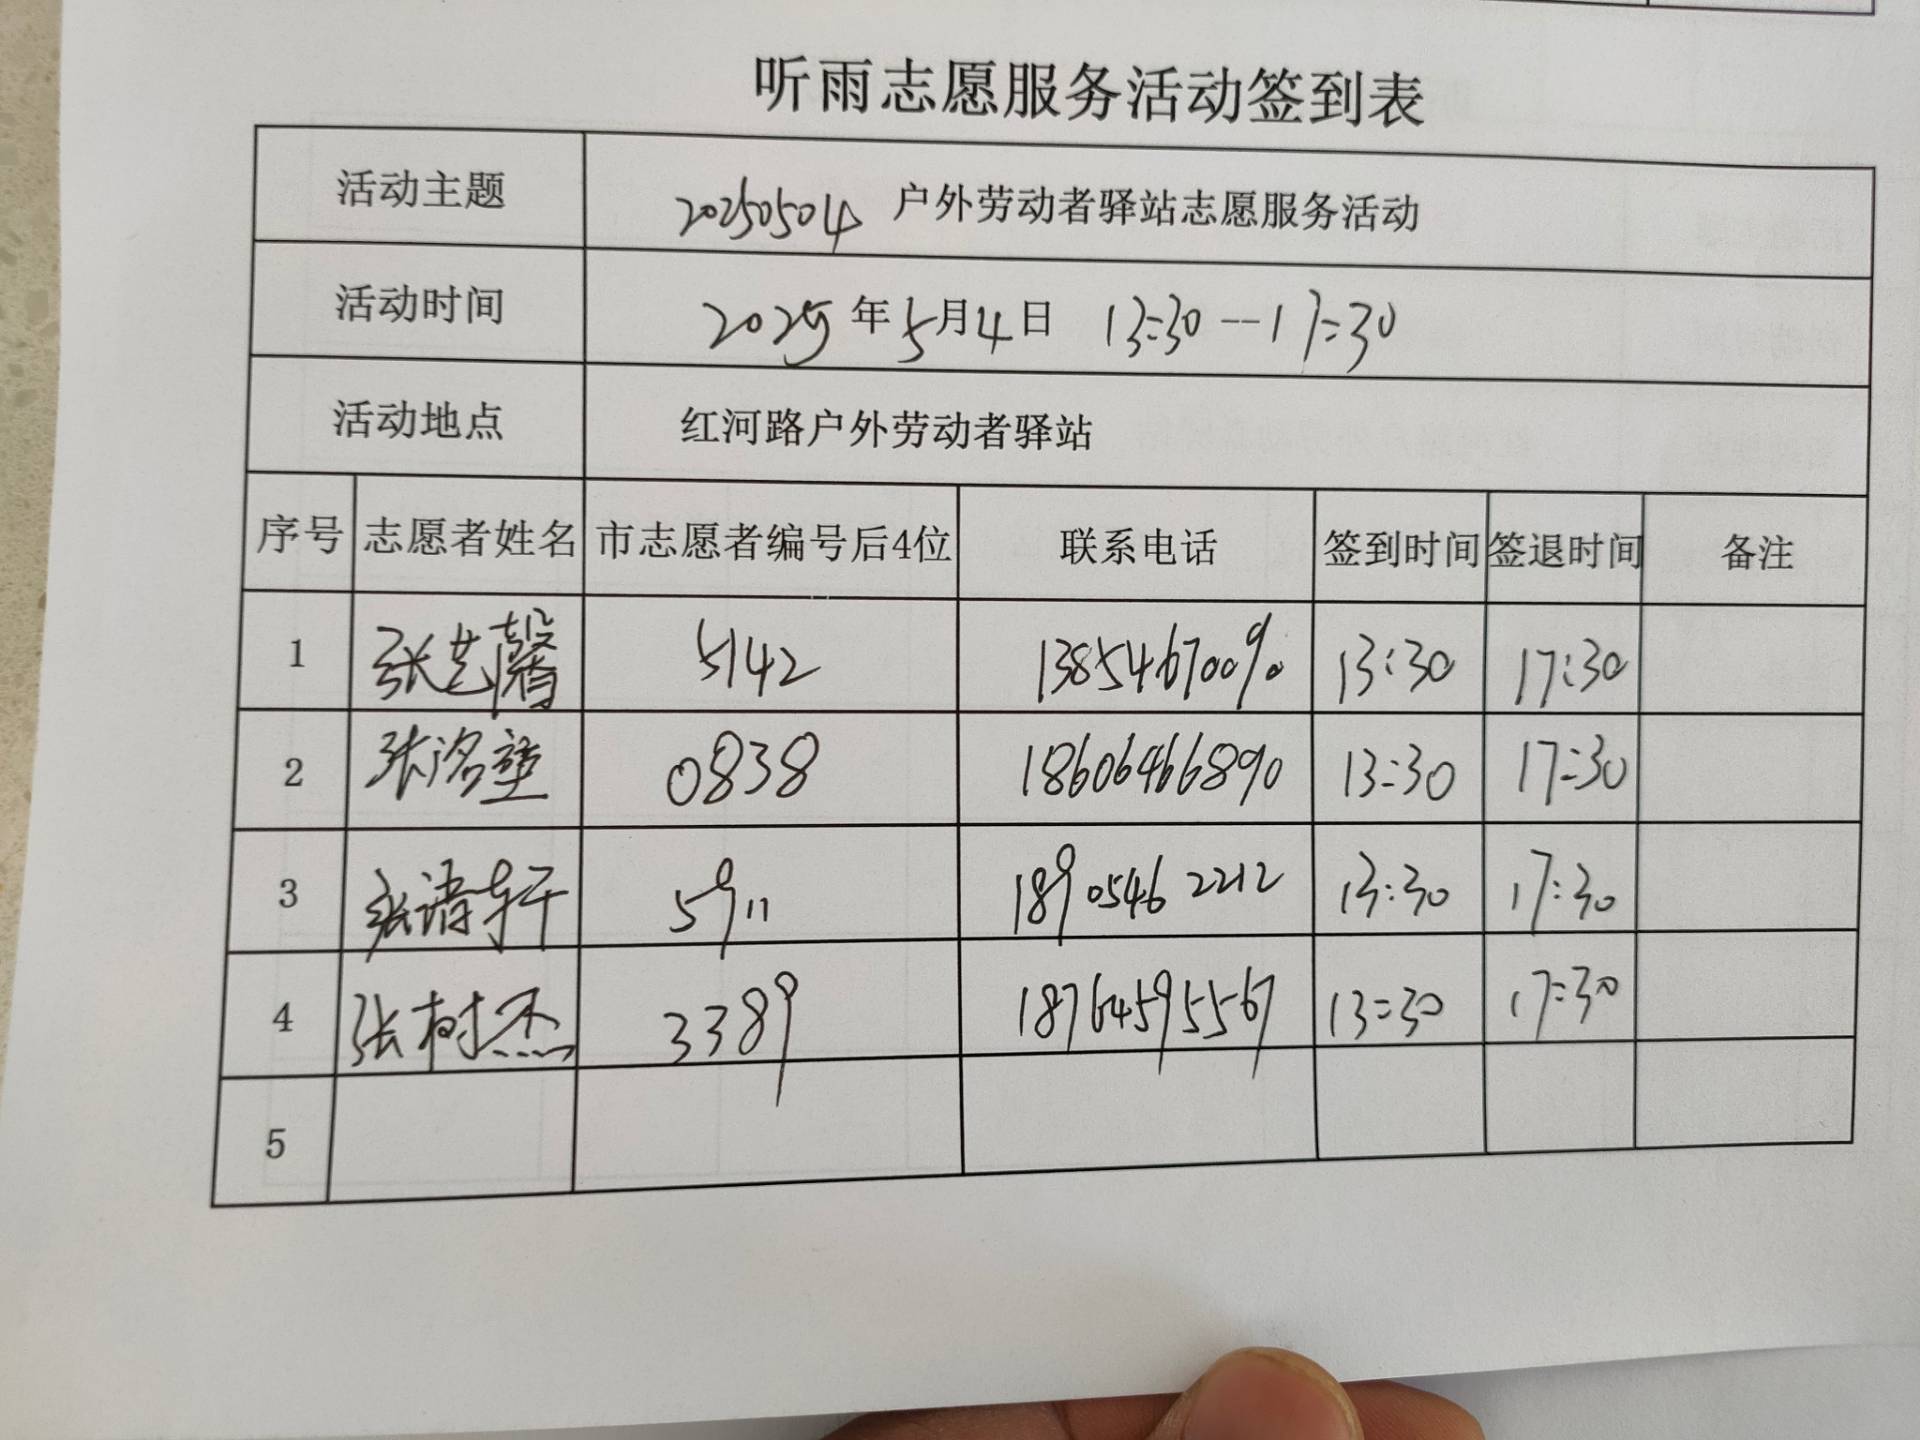 听雨志愿服务活动签到表
活动主题 20250504 户外劳动者驿站志愿服务活动
活动时间 2025年5月4日 13:30--17:30
活动地点 红河路户外劳动者驿站
序号 志愿者姓名 市志愿者编号后4位 联系电话 签到时间 签退时间 备注
1 张艺馨 5142 13854670090 13:30 17:30
2 张洺 0838 18606466890 13:30 17:30
3 张诗轩 5911 18905462212 13:30 17:30
4 张树杰 3389 18764595567 13:30 17:30
5